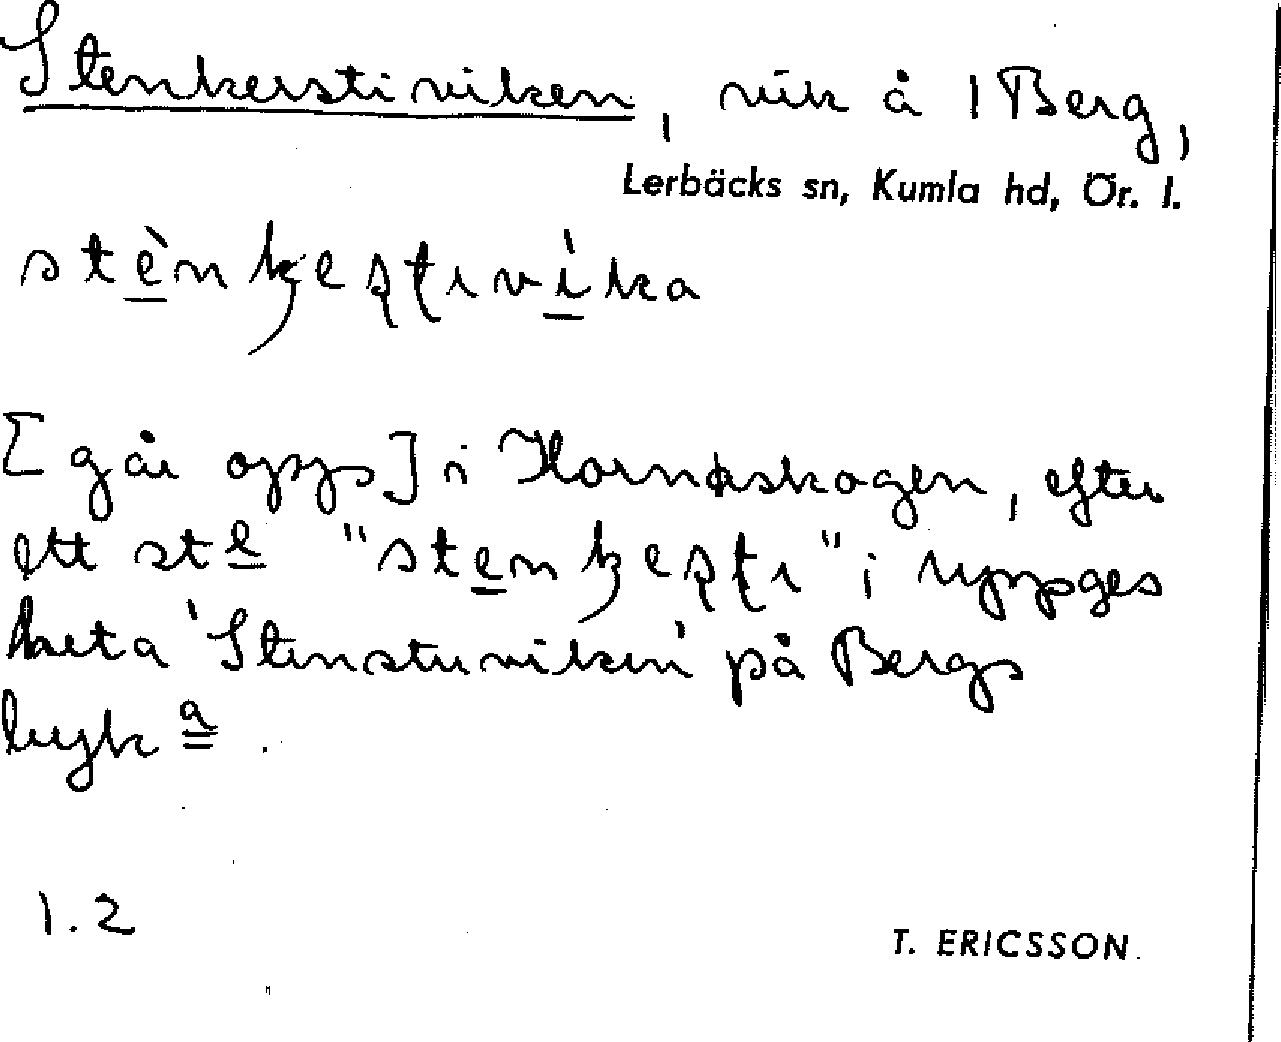 Stenkerstiviken, vik å 1 Berg,
Lerbäcks sn, Kumla hd, Ör. l.
stènkestivìka
[går opp] i Hornaskogen, efter
ett ste "stenkesti"; uppges
heta 'Stensterviken' på Bergs
lugk a.
1.2
T. ERICSSON.